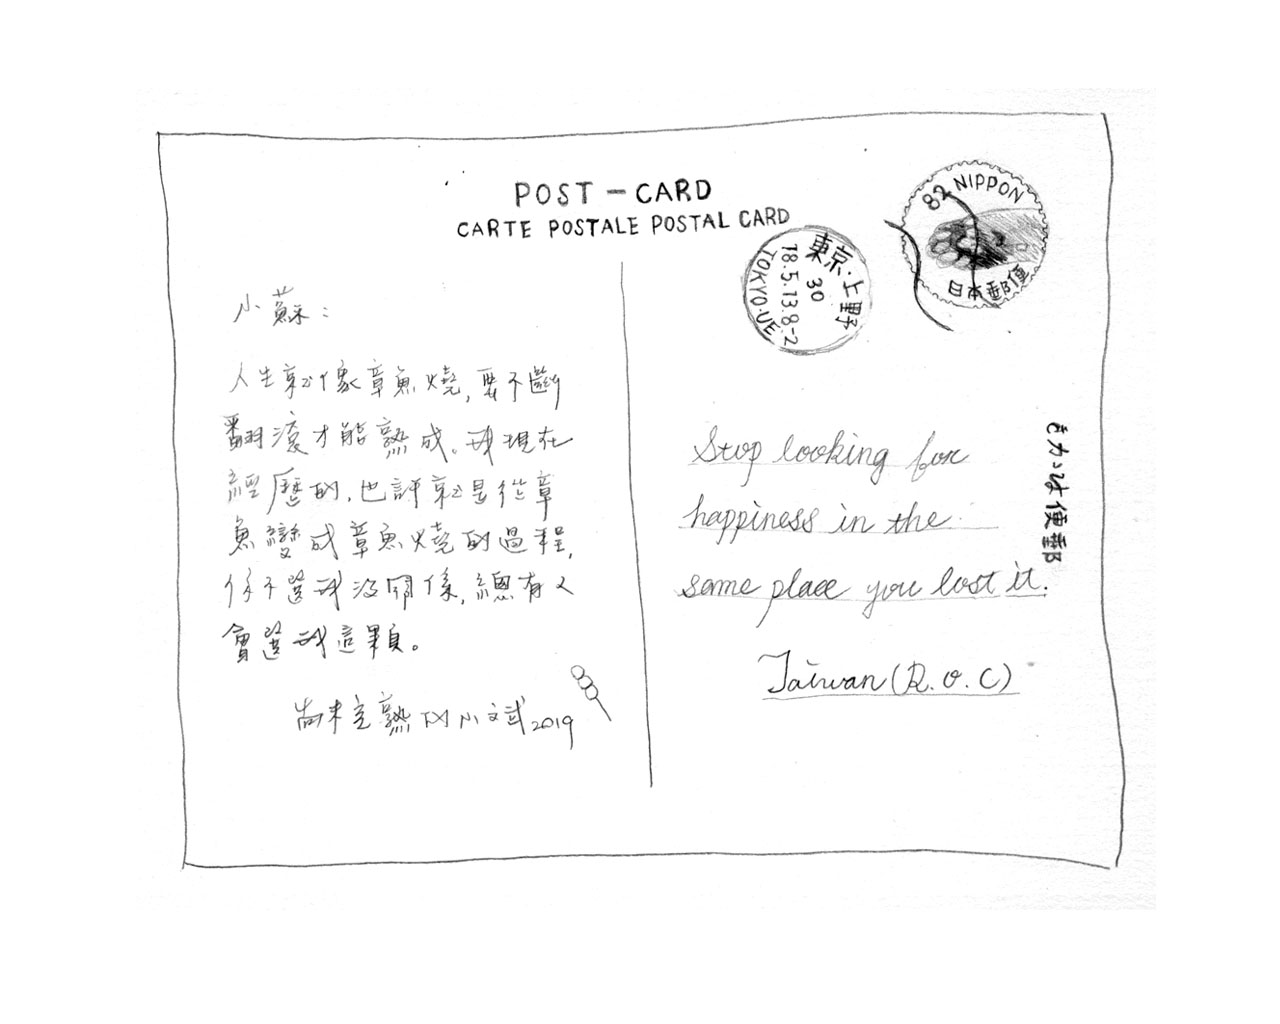 POST-CARD
CARTE POSTALE POSTAL CARD
82 NIPPON
日本郵便
東京・上野
30
18.5.13.8-2
TOKYO·UE
小蘇：
人生就像章魚燒，要不斷
翻滾才能熟成。我現在
經歷的，也許就是從章
魚變成章魚燒的過程，
你不選我沒關係，總有人
會選我這顆。
尚未完熟的小文武 2019
Stop looking for
happiness in the
same place you lost it.
Taiwan (R.O.C)
郵便はがき